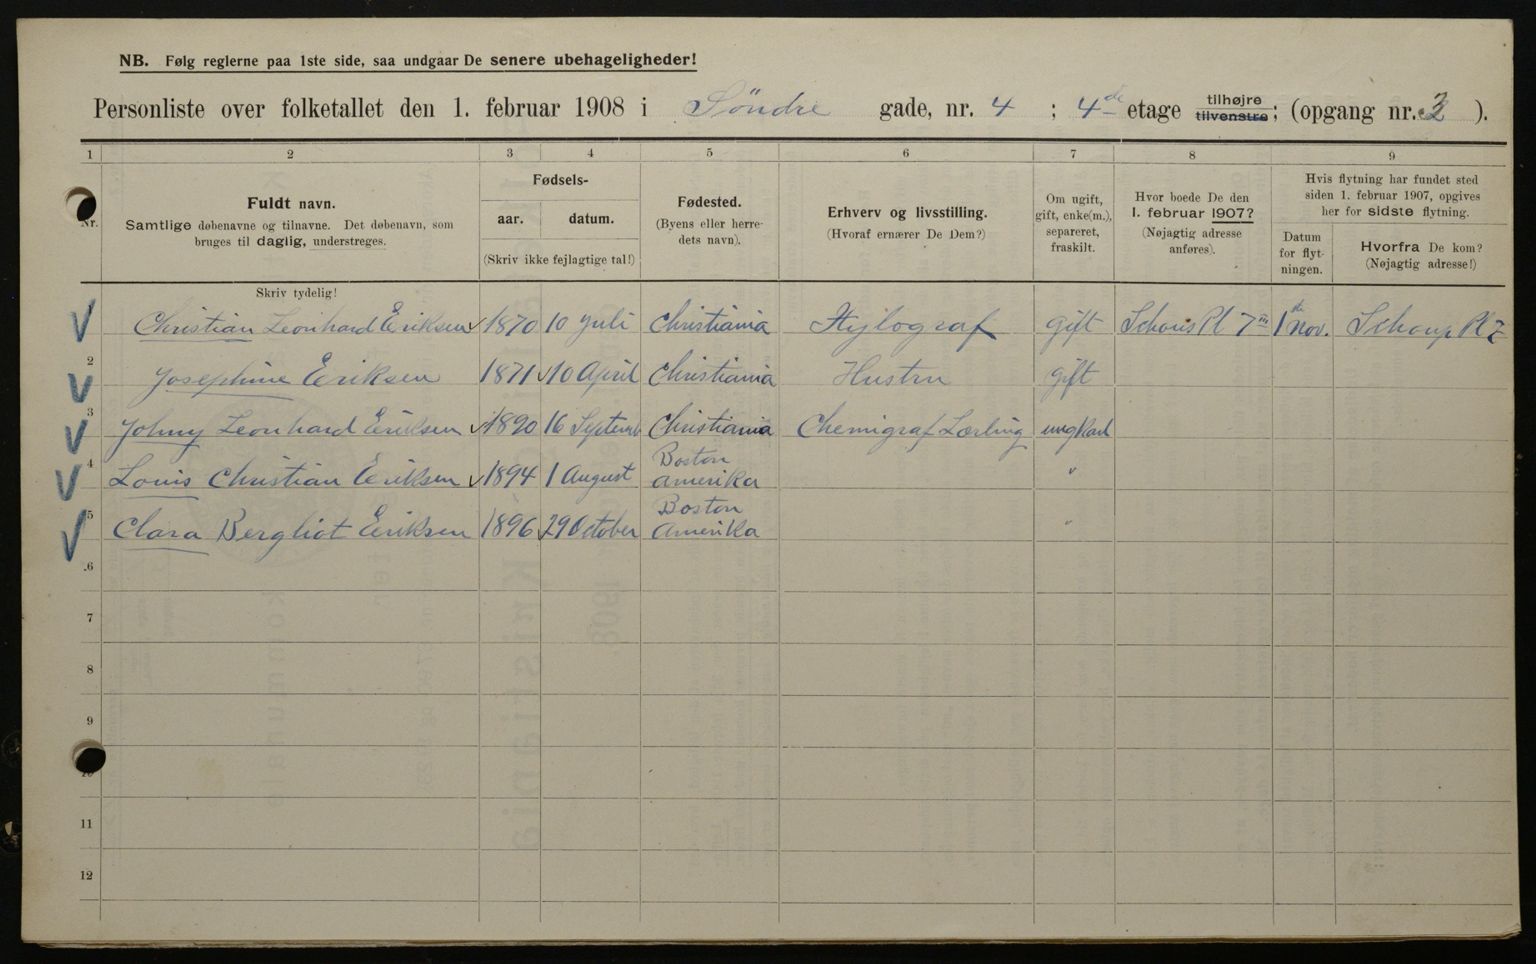 NB. Følg reglerne paa 1ste side, saa undgaar De senere ubehageligheder!
Personliste over folketallet den 1. februar 1908 i Söndre gade, nr. 4 ; 4de etage tilhøjre tilvenstre; (opgang nr. 3 ).
1 2 3 4 5 6 7 8 9
Nr.
Fuldt navn.
Samtlige døbenavne og tilnavne. Det døbenavn, som
bruges til daglig, understreges.
Fødsels-
aar. datum.
(Skriv ikke fejlagtige tal!)
Fødested.
(Byens eller herre-
dets navn).
Erhverv og livsstilling.
(Hvoraf ernærer De Dem?)
Om ugift,
gift, enke(m.),
separeret,
fraskilt.
Hvor boede De den
1. februar 1907?
(Nøjagtig adresse
anføres).
Hvis flytning har fundet sted
siden 1. februar 1907, opgives
her for sidste flytning.
Datum
for flyt-
ningen.
Hvorfra De kom?
(Nøjagtig adresse!)
Skriv tydelig!
Christian Leonhard Eriksen 1870 10 Juli Christiania Xylograf gift Schous Pl 7 1ste Nov. Schous Pl 7
2 Josephine Eriksen 1871 10 April Christiania Hustru gift
3 Johny Leonhard Eriksen 1890 16 Septemb Christiania Chemigraf Lærling ungkarl
4 Louis Christian Eriksen 1894 1 August Boston
Amerika "
5 Clara Bergliot Eriksen 1896 29 October Boston
Amerika "
6
7
8
9
10
11
12